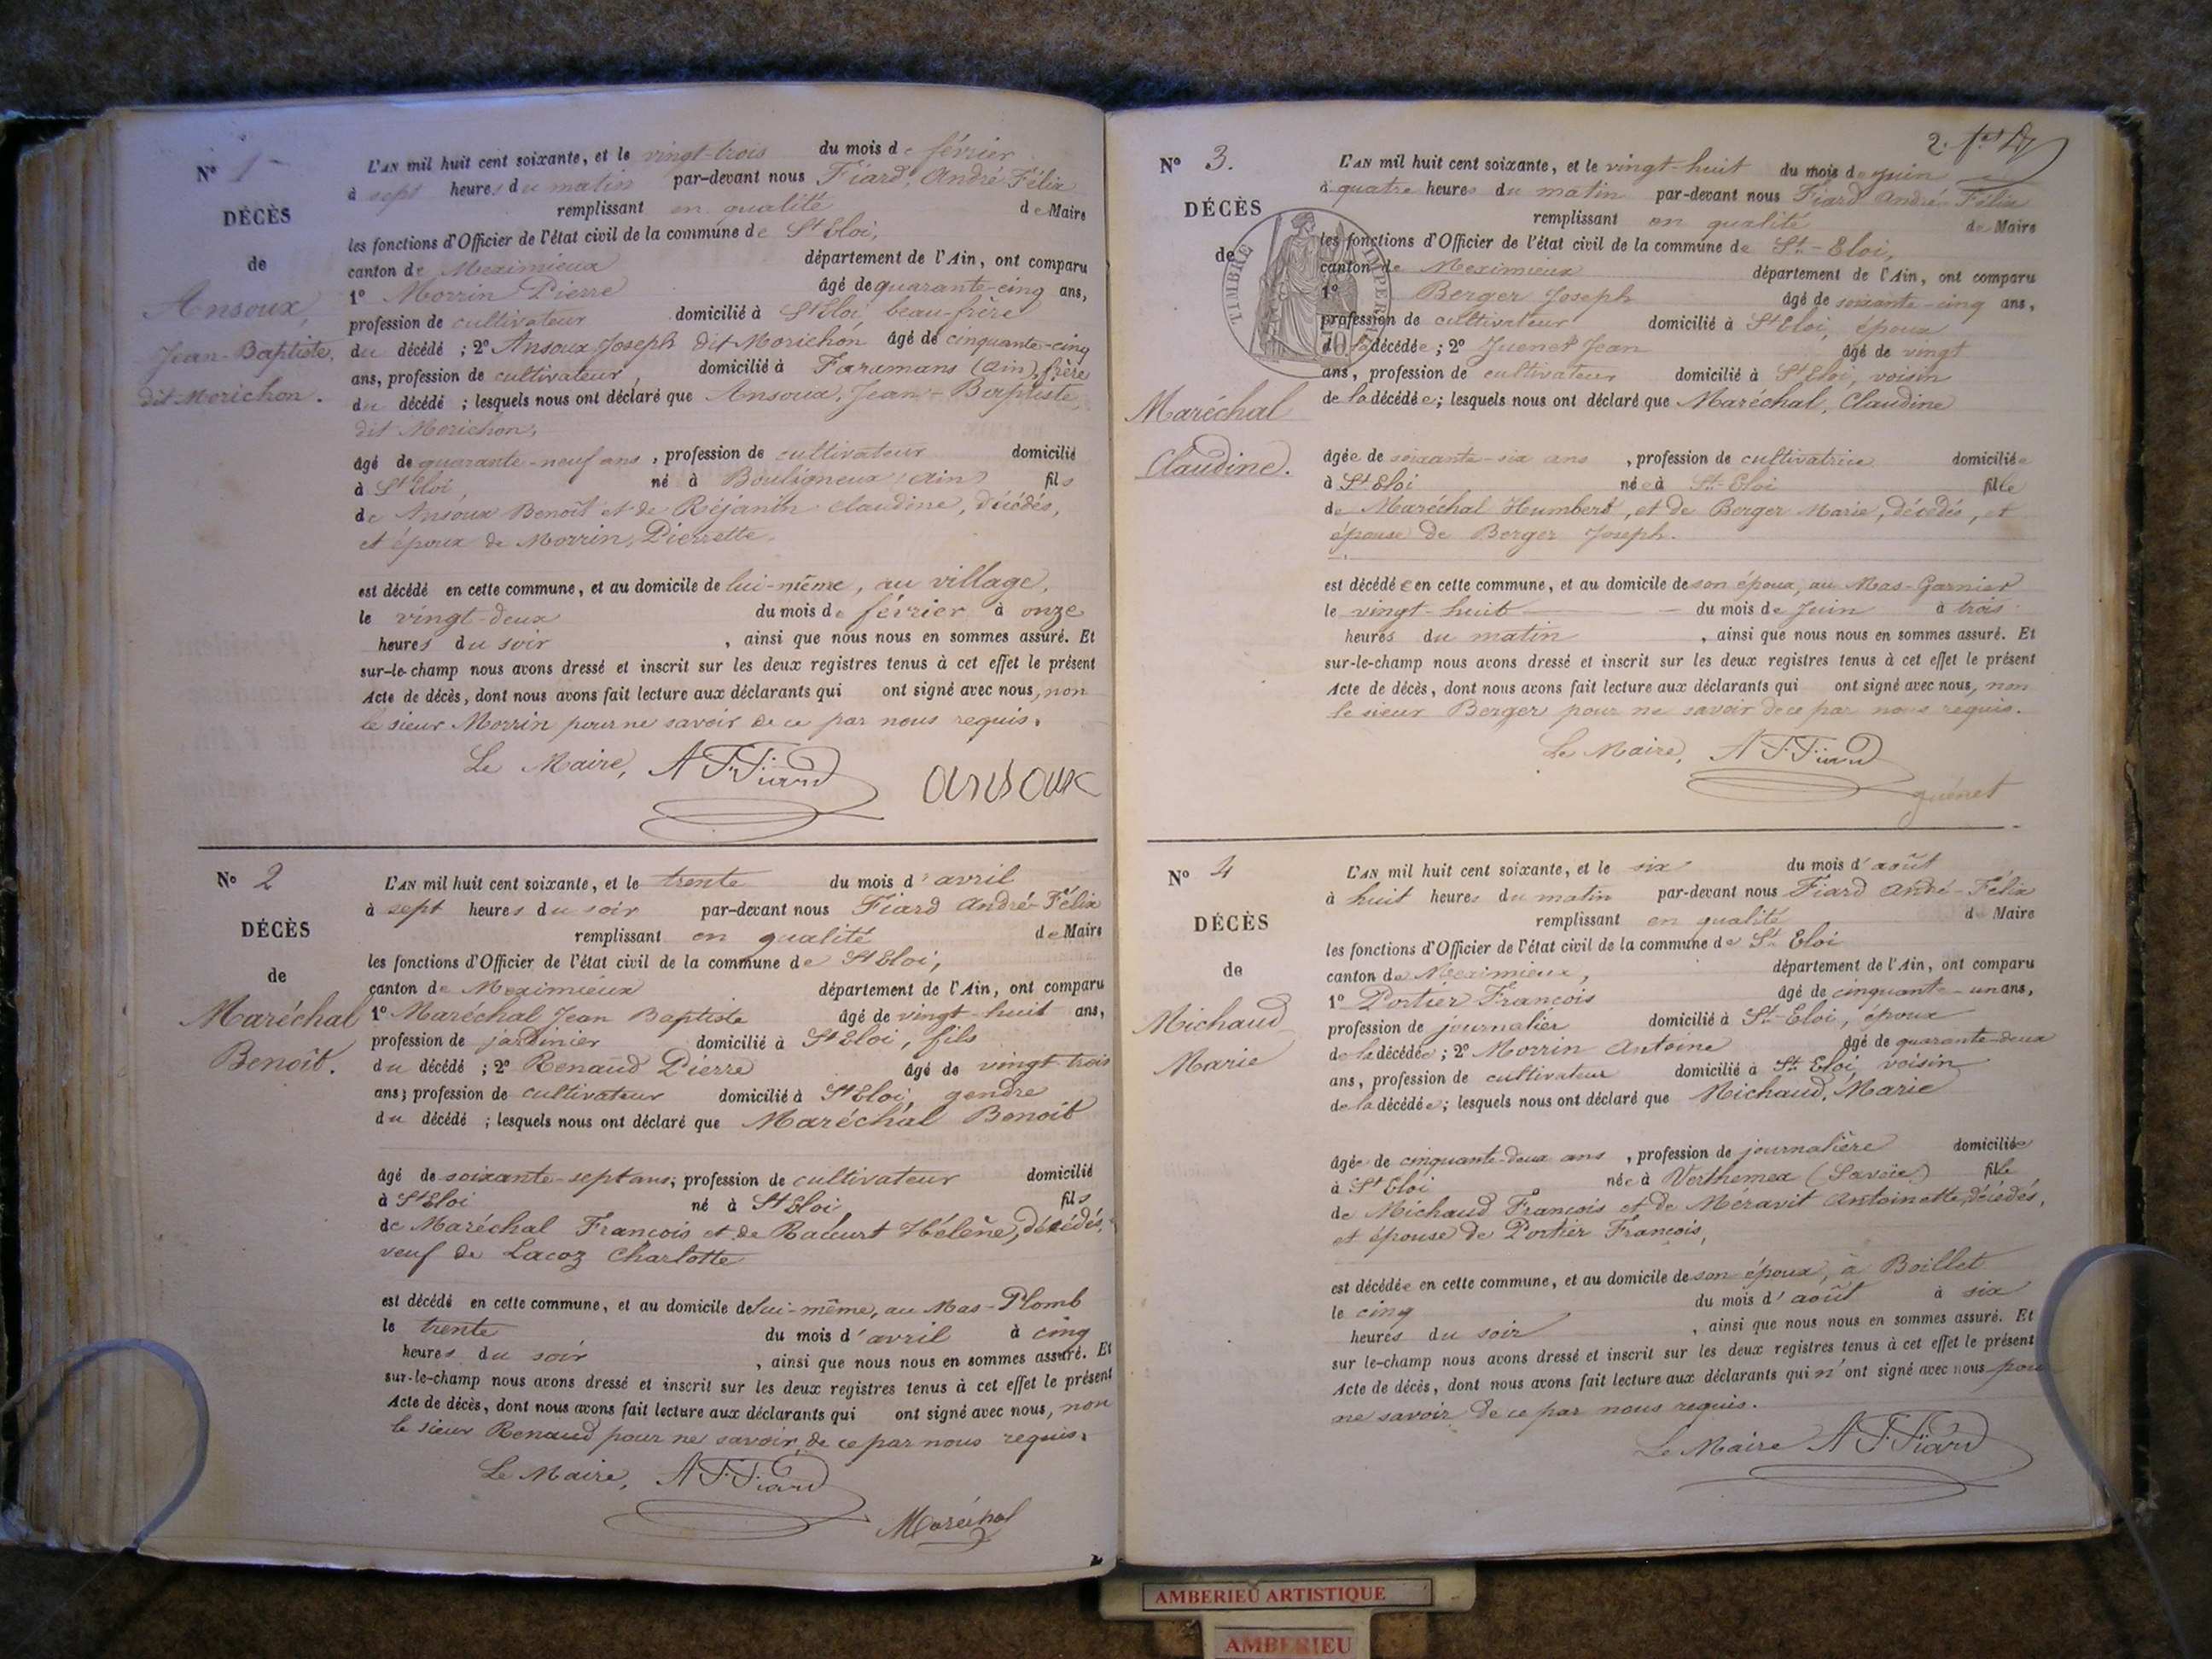 N° 1
DÉCÈS
de
Ansoux,
Jean-Baptiste,
dit Morichon.
L'AN mil huit cent soixante, et le vingt-trois du mois de février
à sept heures du matin par-devant nous Fiard, André-Félix
remplissant en qualité de Maire
les fonctions d'Officier de l'état civil de la commune de St Eloi,
canton de Meximieux département de l'Ain, ont comparu
1° Morrin Pierre âgé de quarante-cinq ans,
profession de cultivateur domicilié à St Eloi, beau-frère
du décédé ; 2° Ansoux Joseph dit Morichon âgé de cinquante-cinq
ans, profession de cultivateur, domicilié à Faramans (Ain), frère
du décédé ; lesquels nous ont déclaré que Ansoux, Jean-Baptiste,
dit Morichon,
âgé de quarante-neuf ans, profession de cultivateur domicilié
à St Eloi, né à Bouligneux (Ain) fils
de Ansoux Benoît et de Réjanin Claudine, décédés,
et époux de Morrin, Pierrette.
est décédé en cette commune, et au domicile de lui-même, au village,
le vingt-deux du mois de février à onze
heures du soir , ainsi que nous nous en sommes assuré. Et
sur-le-champ nous avons dressé et inscrit sur les deux registres tenus à cet effet le présent
Acte de décès, dont nous avons fait lecture aux déclarants qui ont signé avec nous, non
le sieur Morrin pour ne savoir de ce par nous requis.
Le Maire, A F Fiard
ansoux
N° 2
DÉCÈS
de
Maréchal
Benoît.
L'AN mil huit cent soixante, et le trente du mois d'avril
à sept heures du soir par-devant nous Fiard André-Félix
remplissant en qualité de Maire
les fonctions d'Officier de l'état civil de la commune de St Eloi,
canton de Meximieux département de l'Ain, ont comparu
1° Maréchal Jean Baptiste âgé de vingt-huit ans,
profession de jardinier domicilié à St Eloi, fils
du décédé ; 2° Renaud Pierre âgé de vingt-trois
ans; profession de cultivateur domicilié à St Eloi, gendre
du décédé ; lesquels nous ont déclaré que Maréchal Benoît
âgé de soixante-sept ans; profession de cultivateur domicilié
à St Eloi né à St Eloi, fils
de Maréchal François et de Racurt Hélène, décédés,
veuf de Lacoz Charlotte
est décédé en cette commune, et au domicile de lui-même, au Mas-Plomb
le trente du mois d'avril à cinq
heures du soir , ainsi que nous nous en sommes assuré. Et
sur-le-champ nous avons dressé et inscrit sur les deux registres tenus à cet effet le présent
Acte de décès, dont nous avons fait lecture aux déclarants qui ont signé avec nous, non
le sieur Renaud pour ne savoir de ce par nous requis.
Le Maire, A F Fiard
Maréchal
N° 3.
DÉCÈS
de
TIMBRE IMPERIAL
Maréchal
Claudine.
L'AN mil huit cent soixante, et le vingt-huit du mois de juin
à quatre heures du matin par-devant nous Fiard André-Félix
remplissant en qualité de Maire
les fonctions d'Officier de l'état civil de la commune de St-Eloi,
canton de Meximieux département de l'Ain, ont comparu
1° Berger Joseph âgé de soixante-cinq ans,
profession de cultivateur domicilié à St Eloi, époux
de la décédée ; 2° Juenet Jean âgé de vingt
ans, profession de cultivateur domicilié à St Eloi, voisin
de la décédée; lesquels nous ont déclaré que Maréchal, Claudine
âgée de soixante-six ans , profession de cultivatrice domiciliée
à St Eloi née à St-Eloi fille
de Maréchal Humbert, et de Berger Marie, décédés, et
épouse de Berger Joseph.
est décédée en cette commune, et au domicile de son époux, au Mas-Garnier
le vingt-huit du mois de Juin à trois
heures du matin , ainsi que nous nous en sommes assuré. Et
sur-le-champ nous avons dressé et inscrit sur les deux registres tenus à cet effet le présent
Acte de décès, dont nous avons fait lecture aux déclarants qui ont signé avec nous, non
le sieur Berger pour ne savoir de ce par nous requis.
Le Maire, A F Fiard
guénet
N° 4
DÉCÈS
de
Michaud
Marie
L'AN mil huit cent soixante, et le six du mois d'août
à huit heures du matin par-devant nous Fiard André-Félix
remplissant en qualité de Maire
les fonctions d'Officier de l'état civil de la commune de St Eloi
canton de Meximieux, département de l'Ain, ont comparu
1° Portier François âgé de cinquante-un ans,
profession de journalier domicilié à St-Eloi, époux
de la décédée ; 2° Morrin Antoine âgé de quarante-deux
ans, profession de cultivateur domicilié à St Eloi, voisin
de la décédée; lesquels nous ont déclaré que Michaud, Marie
âgée de cinquante-deux ans , profession de journalière domiciliée
à St Eloi née à Verthemex (Savoie) fille
de Michaud François et de Méravit Antoinette, décédés,
et épouse de Portier François,
est décédée en cette commune, et au domicile de son époux, à Boillet
le cinq du mois d'août à six
heures du soir , ainsi que nous nous en sommes assuré. Et
sur le-champ nous avons dressé et inscrit sur les deux registres tenus à cet effet le présent
Acte de décès, dont nous avons fait lecture aux déclarants qui n'ont signé avec nous pour
ne savoir de ce par nous requis.
Le Maire A F Fiard
AMBERIEU ARTISTIQUE
AMBERIEU